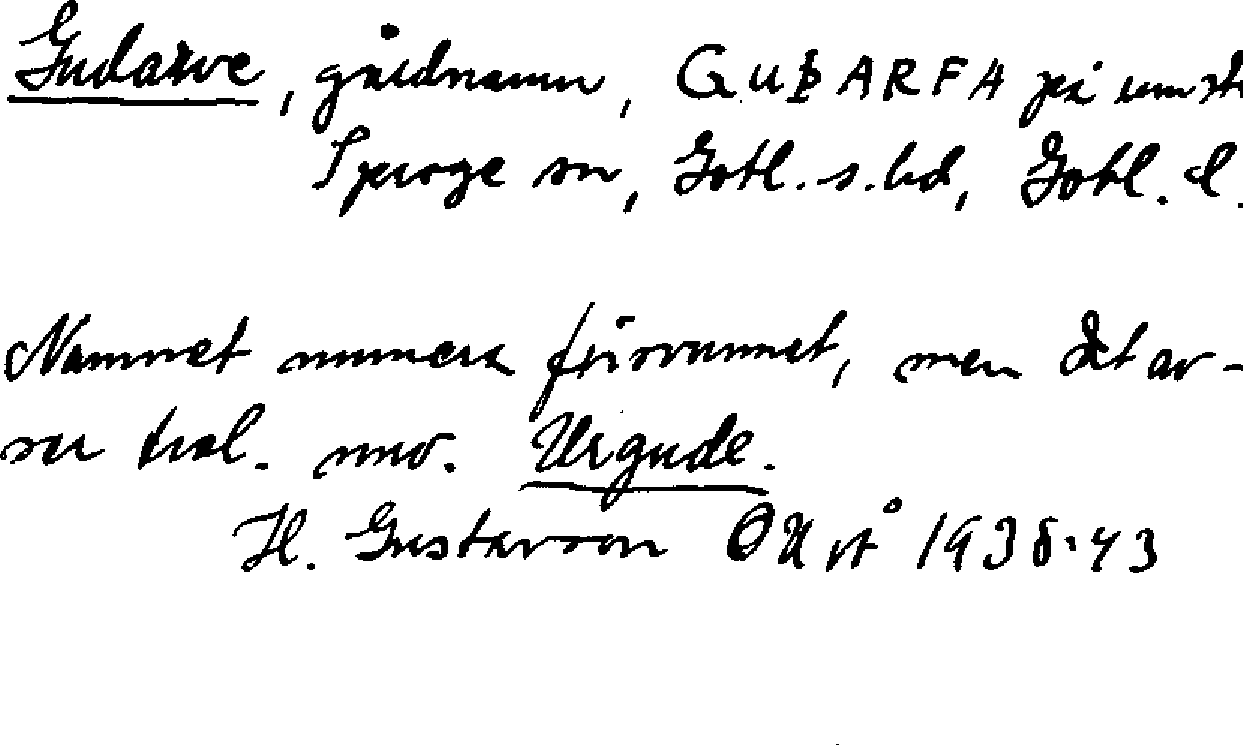 Gudarve, gårdnamn, GUÞARFA på runst
Sproge sn, Gotl. s. hd, Gotl. l.
Namnet numera försvunnet, men det av-
ser trol. nuv. Urgude.
H. Gustavson 1938:43